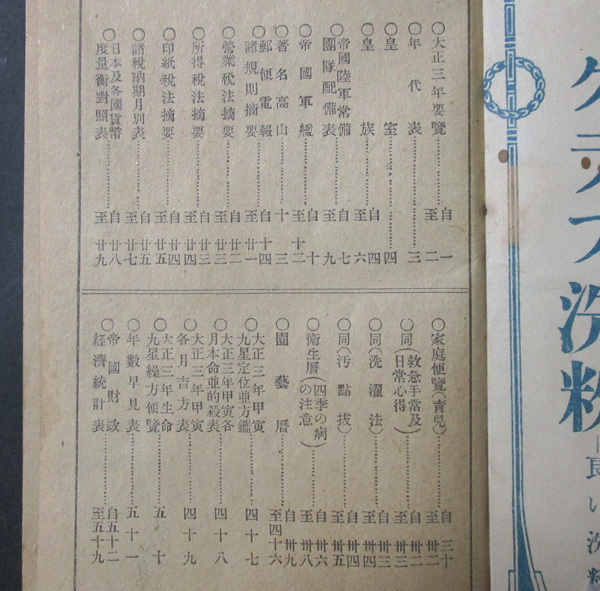 クラブ洗粉
良い洗粉
〇大正三年要覽……自一至二
〇年代表……三
〇皇室……四
〇皇族……自四至六
〇帝國陸軍常備團隊配備表……自七至九
〇帝國軍艦……自十至十二
〇著名高山……十三
〇郵便電報諸規則摘要……自十四至廿一
〇營業稅法摘要……自廿二至廿三
〇所得稅法摘要……自廿三至廿四
〇印紙稅法摘要……自廿四至廿五
〇諸稅納期月別表……廿五
〇日本及各國貨幣度量衡對照表……自廿八至廿九
〇家庭便覽(育兒)……自三十至卅二
〇同(救急手當及日常心得)……自卅二至卅三
〇同(洗濯法)……自卅三至卅四
〇同(汚點拔)……自卅四至卅五
〇衛生曆(四季の病の注意)……自卅六至卅八
〇園藝曆……自卅九至四十六
〇大正三年甲寅九星定位並方鑑……四十七
〇大正三年甲寅各月本命並的殺表……四十八
〇大正三年甲寅各月吉方表……四十九
〇大正三年生命九星繰方便覽……五十
〇年數早見表……五十一
〇帝國財政經濟統計表……自五十二至五十九